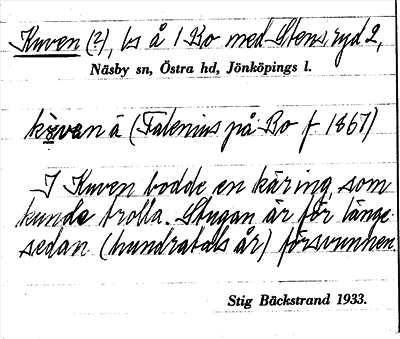 Kuven (?), ls å 1 Bo med Stensryd 2,
Näsby sn, Östra hd, Jönköpings l.
kɷvan ä (Falenius på Bo f 1867)
I Kuven bodde en käring, som
kunde trolla. Stugan är för länge
sedan (hundratals år) försvunnen.
Stig Bäckstrand 1933.